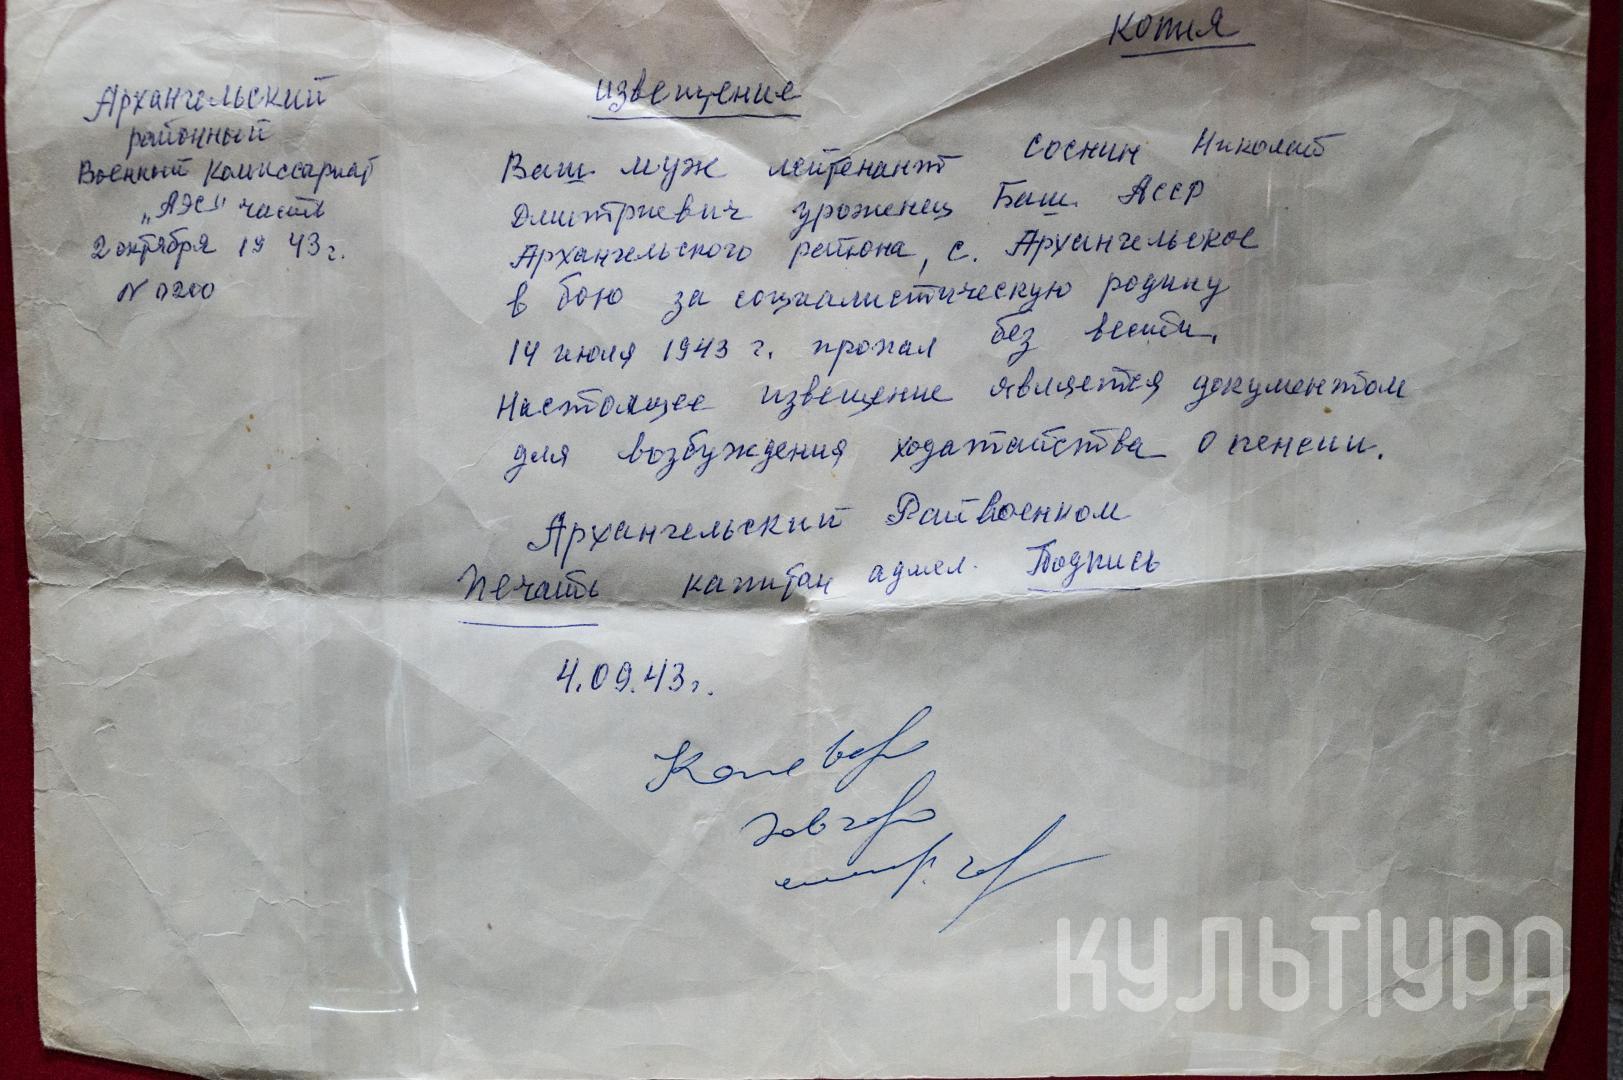 Копия
Архангельский
районный
Военный Комиссариат
часть
2 октября 1943 г.
N 0200
извещение
Ваш муж лейтенант Соснин Николай
Дмитриевич урожениц Баш. АССР
Архангельского района, с. Архангельское
в бою за социалистическую родину
14 июля 1943 г. пропал без вести.
Настоящее извещение является документом
для возбуждения ходатайства о пенсии.
Архангельский Райвоенком
Печать капитан Подпись
4.09.43г.
КУЛЬТУРА